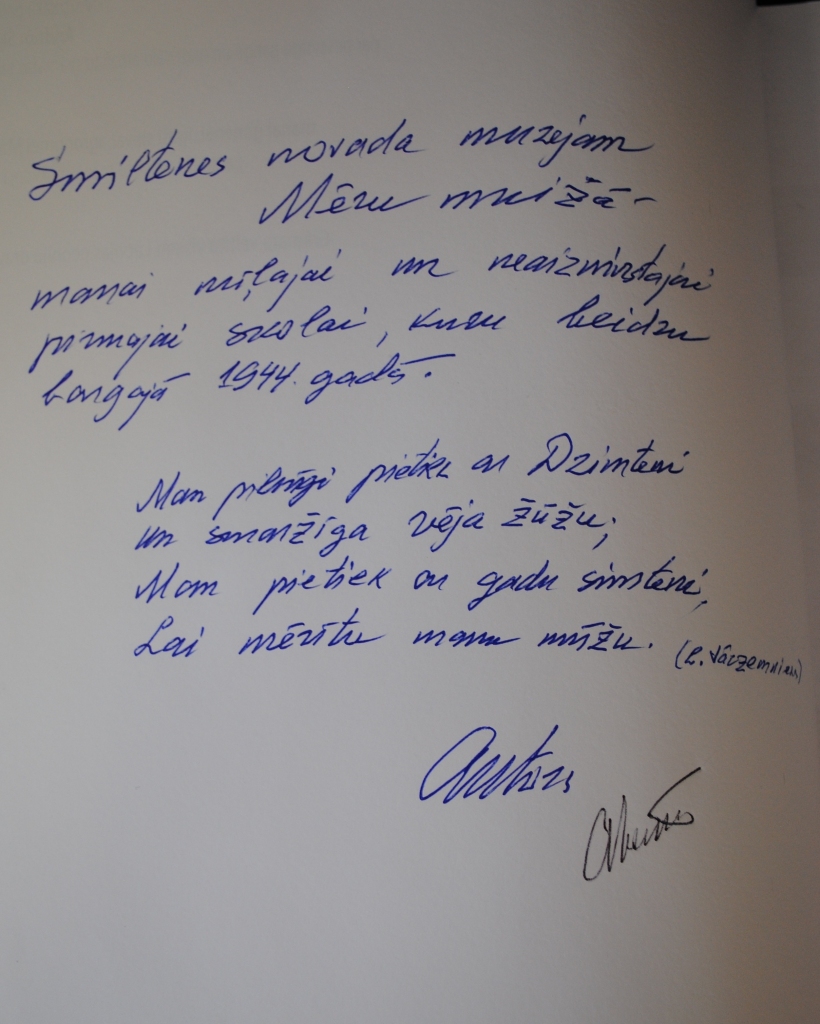 Smiltenes novada muzejam
Mēru muižā -
manai mīļajai un neaizmirstajai
pirmajai skolai, kuru beidzu
bargajā 1944. gadā.
Man pilnīgi pietiek ar Dzimteni
un smaržīga vēja žūžu;
Man pietiek ar gadu simteni,
Lai mērītu manu mūžu.
Autors